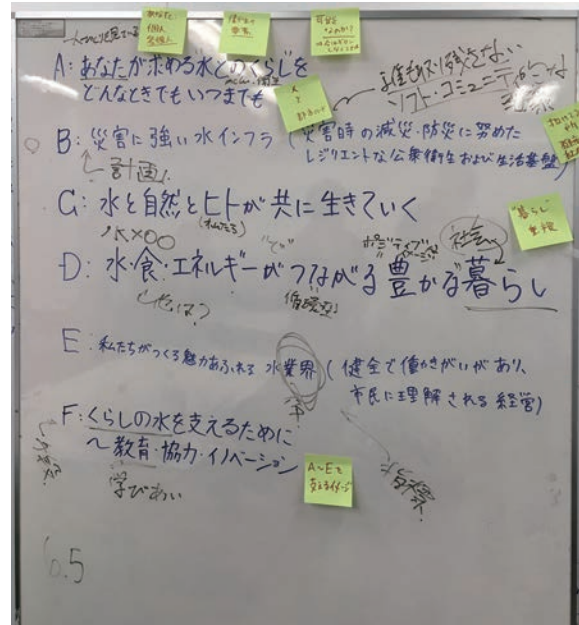 あなた:
個人
A: あなたが求める水とのくらしを
どんなときでもいつまでも
誰一人取り残さない
ソフト・コミュニティ的な
B: 災害に強い水インフラ (災害時の減災・防災に努めた
レジリエントな公衆衛生および生活基盤)
計画
C: 水と自然とヒトが共に生きていく
(私たち)
水×〇〇
"暮らし"
社会
D: 水・食・エネルギーがつながる豊かな暮らし
他は?
循環型
E: 私たちがつくる魅力あふれる 水業界 (健全で働きがいがあり、
市民に理解される経営)
F: くらしの水を支えるために
~教育・協力・イノベーション
学びあい
A~Eを
支えるイメージ
指標
6.5